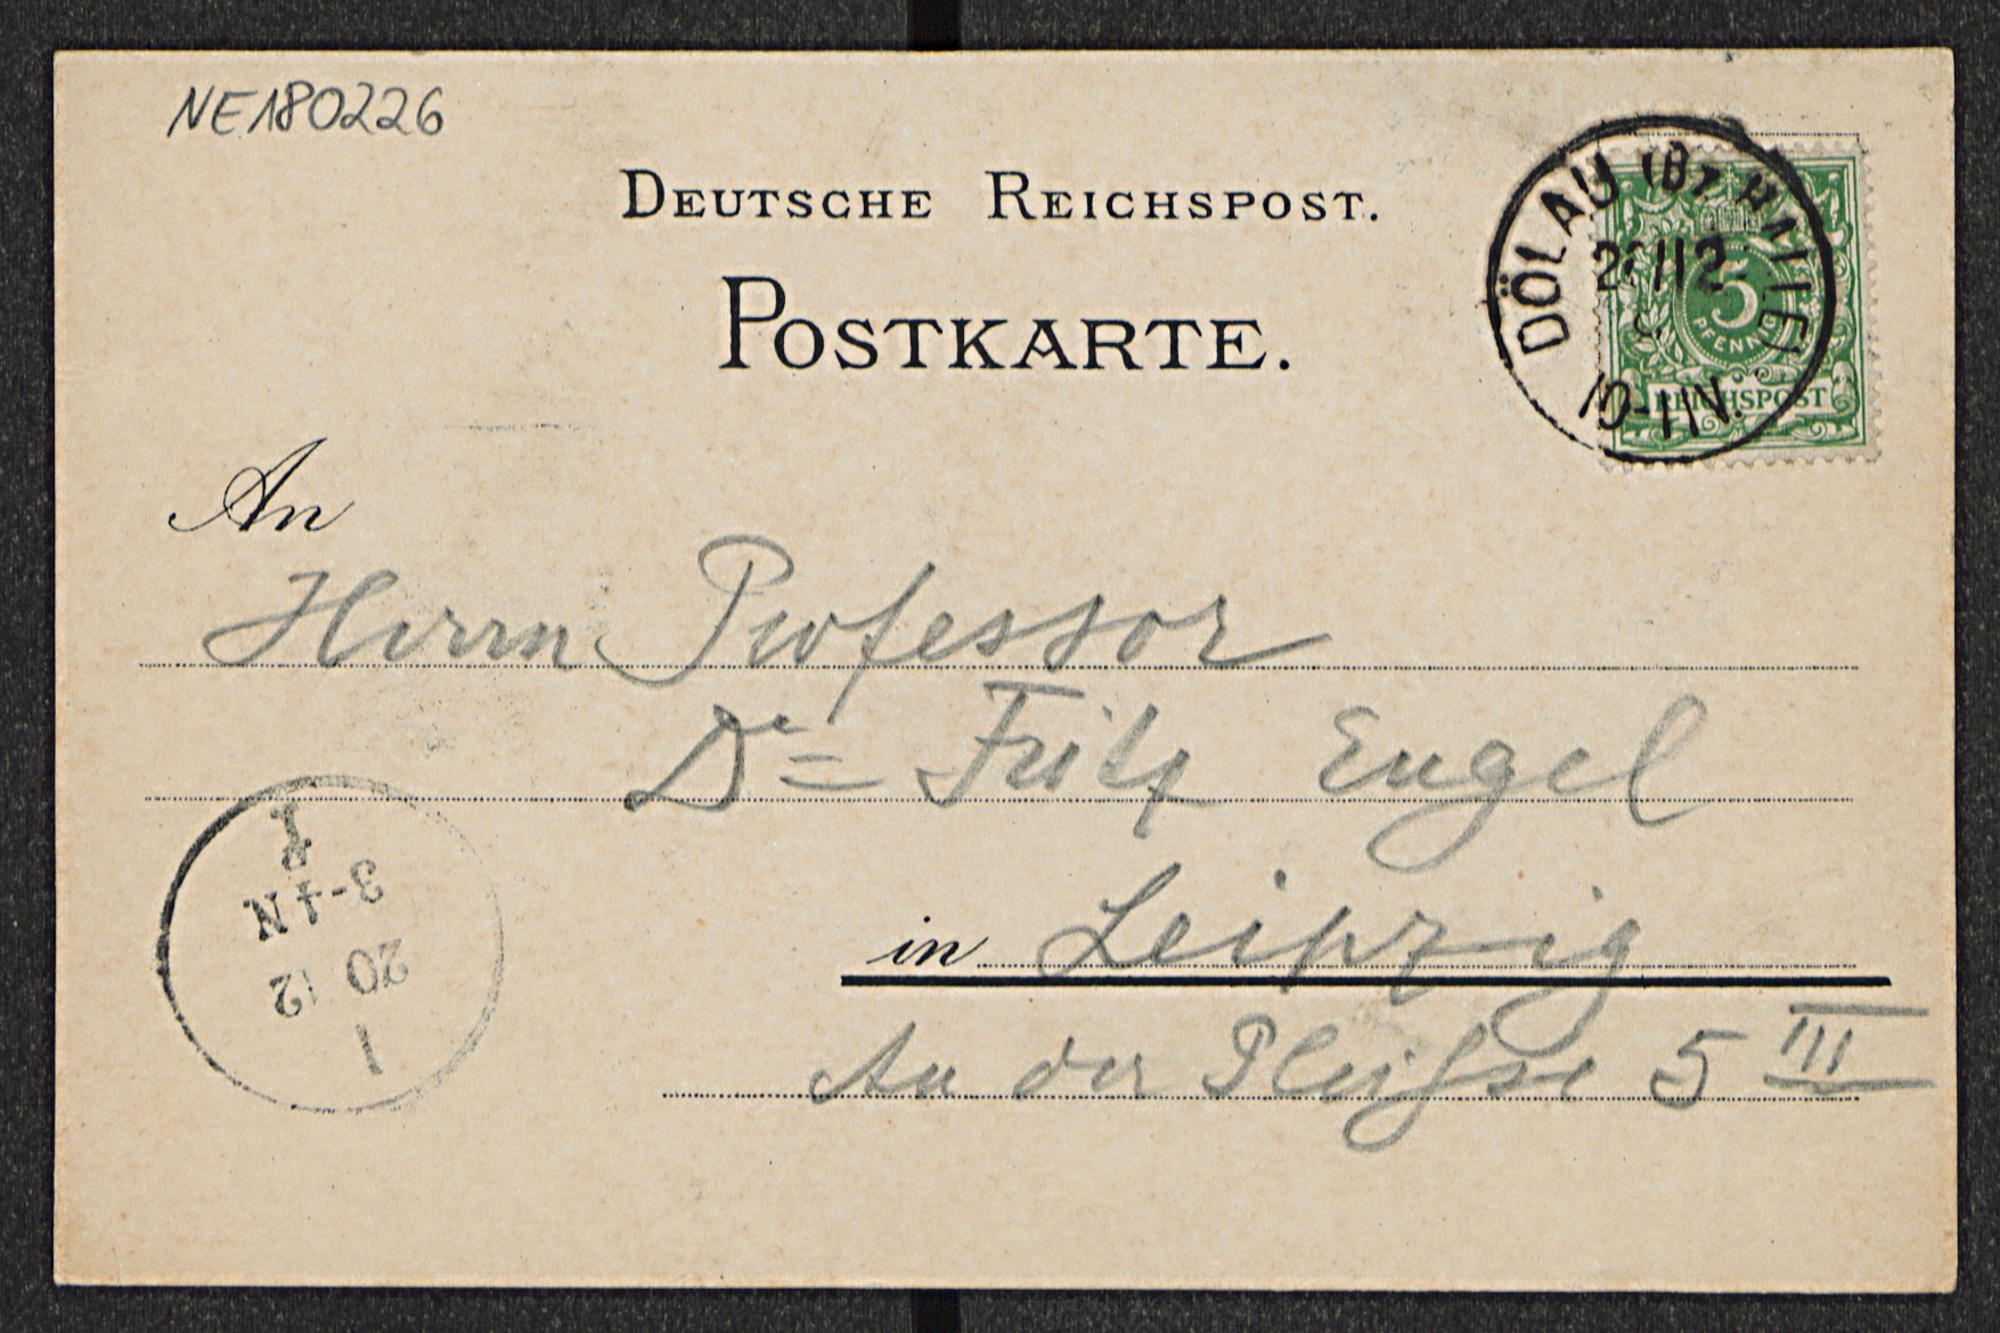 NE180226
DEUTSCHE REICHSPOST.
POSTKARTE.
DÖLAU (Bz HALLE)
10-11V.
5
PFENNIG
REICHSPOST
An
Herrn Professor
Dr= Fritz Engel
in Leipzig
An der Pleißse 5 III
1
20 12
3-4N